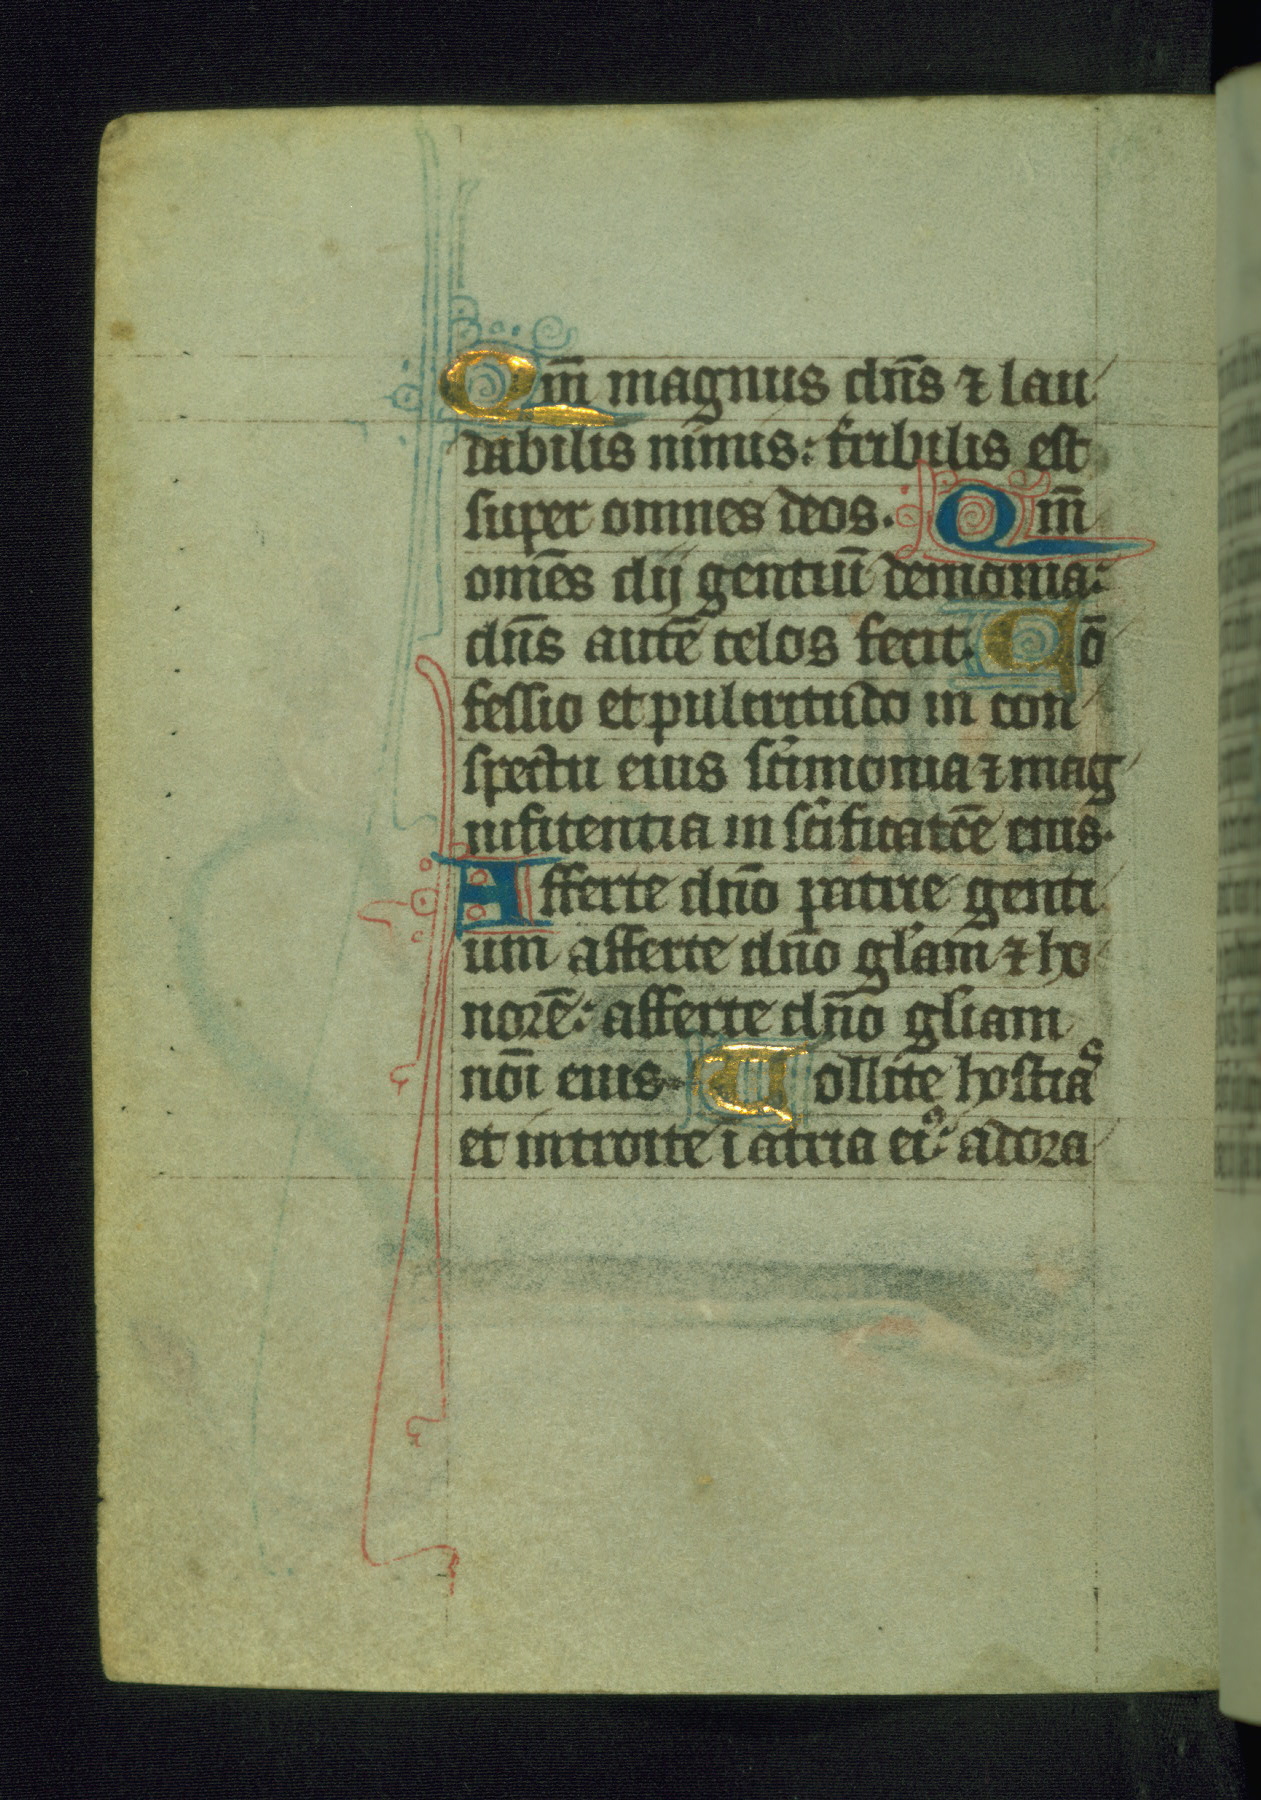 Qm̄ magnus dn̄s ⁊ lau
dabilis nimis: t̄ribilis est
super omnes deos. Qm̄
om̄es dij gentiū demonia:
dn̄s autē celos fecit. Cō
fessio et pulcritudo in con
spectu eius sc̄imonia ⁊ mag
nificentia in sc̄ificatōe eius.
Afferte dn̄o patrie genti
um afferte dn̄o gl̄am ⁊ ho
norē: afferte dn̄o gliam
nōi eius Tollite hostiaˢ
et introite i atria eiꝰ: adora